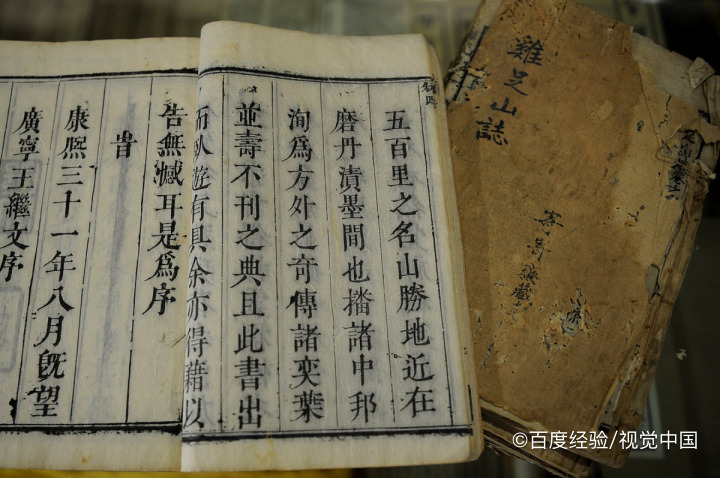 五百里之名山勝地近在
磨丹漬墨間也播諸中邦
洵爲方外之奇傳諸奕葉
並壽不刊之典且此書出
而臥遊有具余亦得藉以
告無憾耳是爲序
旹
康熙三十一年八月旣望
廣寧王繼文序
雞足山誌
©百度经验/视觉中国